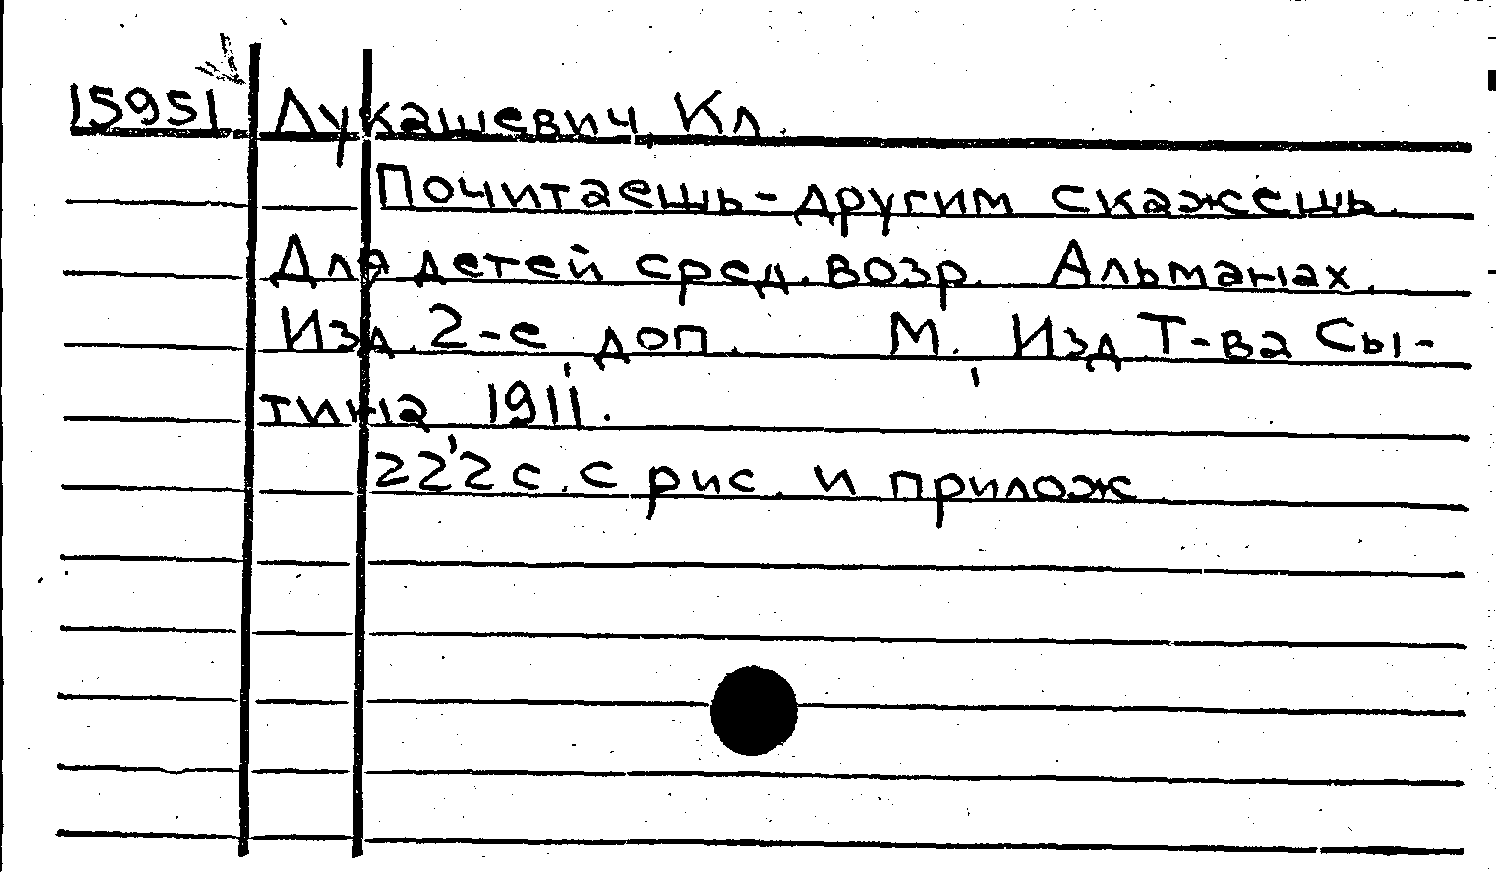 15951 Лукашевич, Кл.
Почитаешь - другим скажешь.
Для детей сред. возр. Альманах.
Изд. 2-е, доп. М., Изд Т-ва Сы-
тина, 1911.
222 с. с рис. и прилож